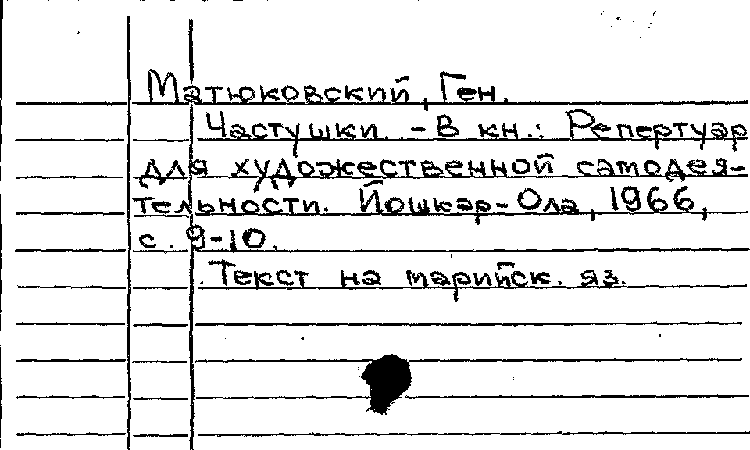 Матюковский, Ген.
Частушки. - В кн.: Репертуар
для художественной самодея-
тельности. Йошкар-Ола, 1966,
с. 9-10.
Текст на марийск. яз.